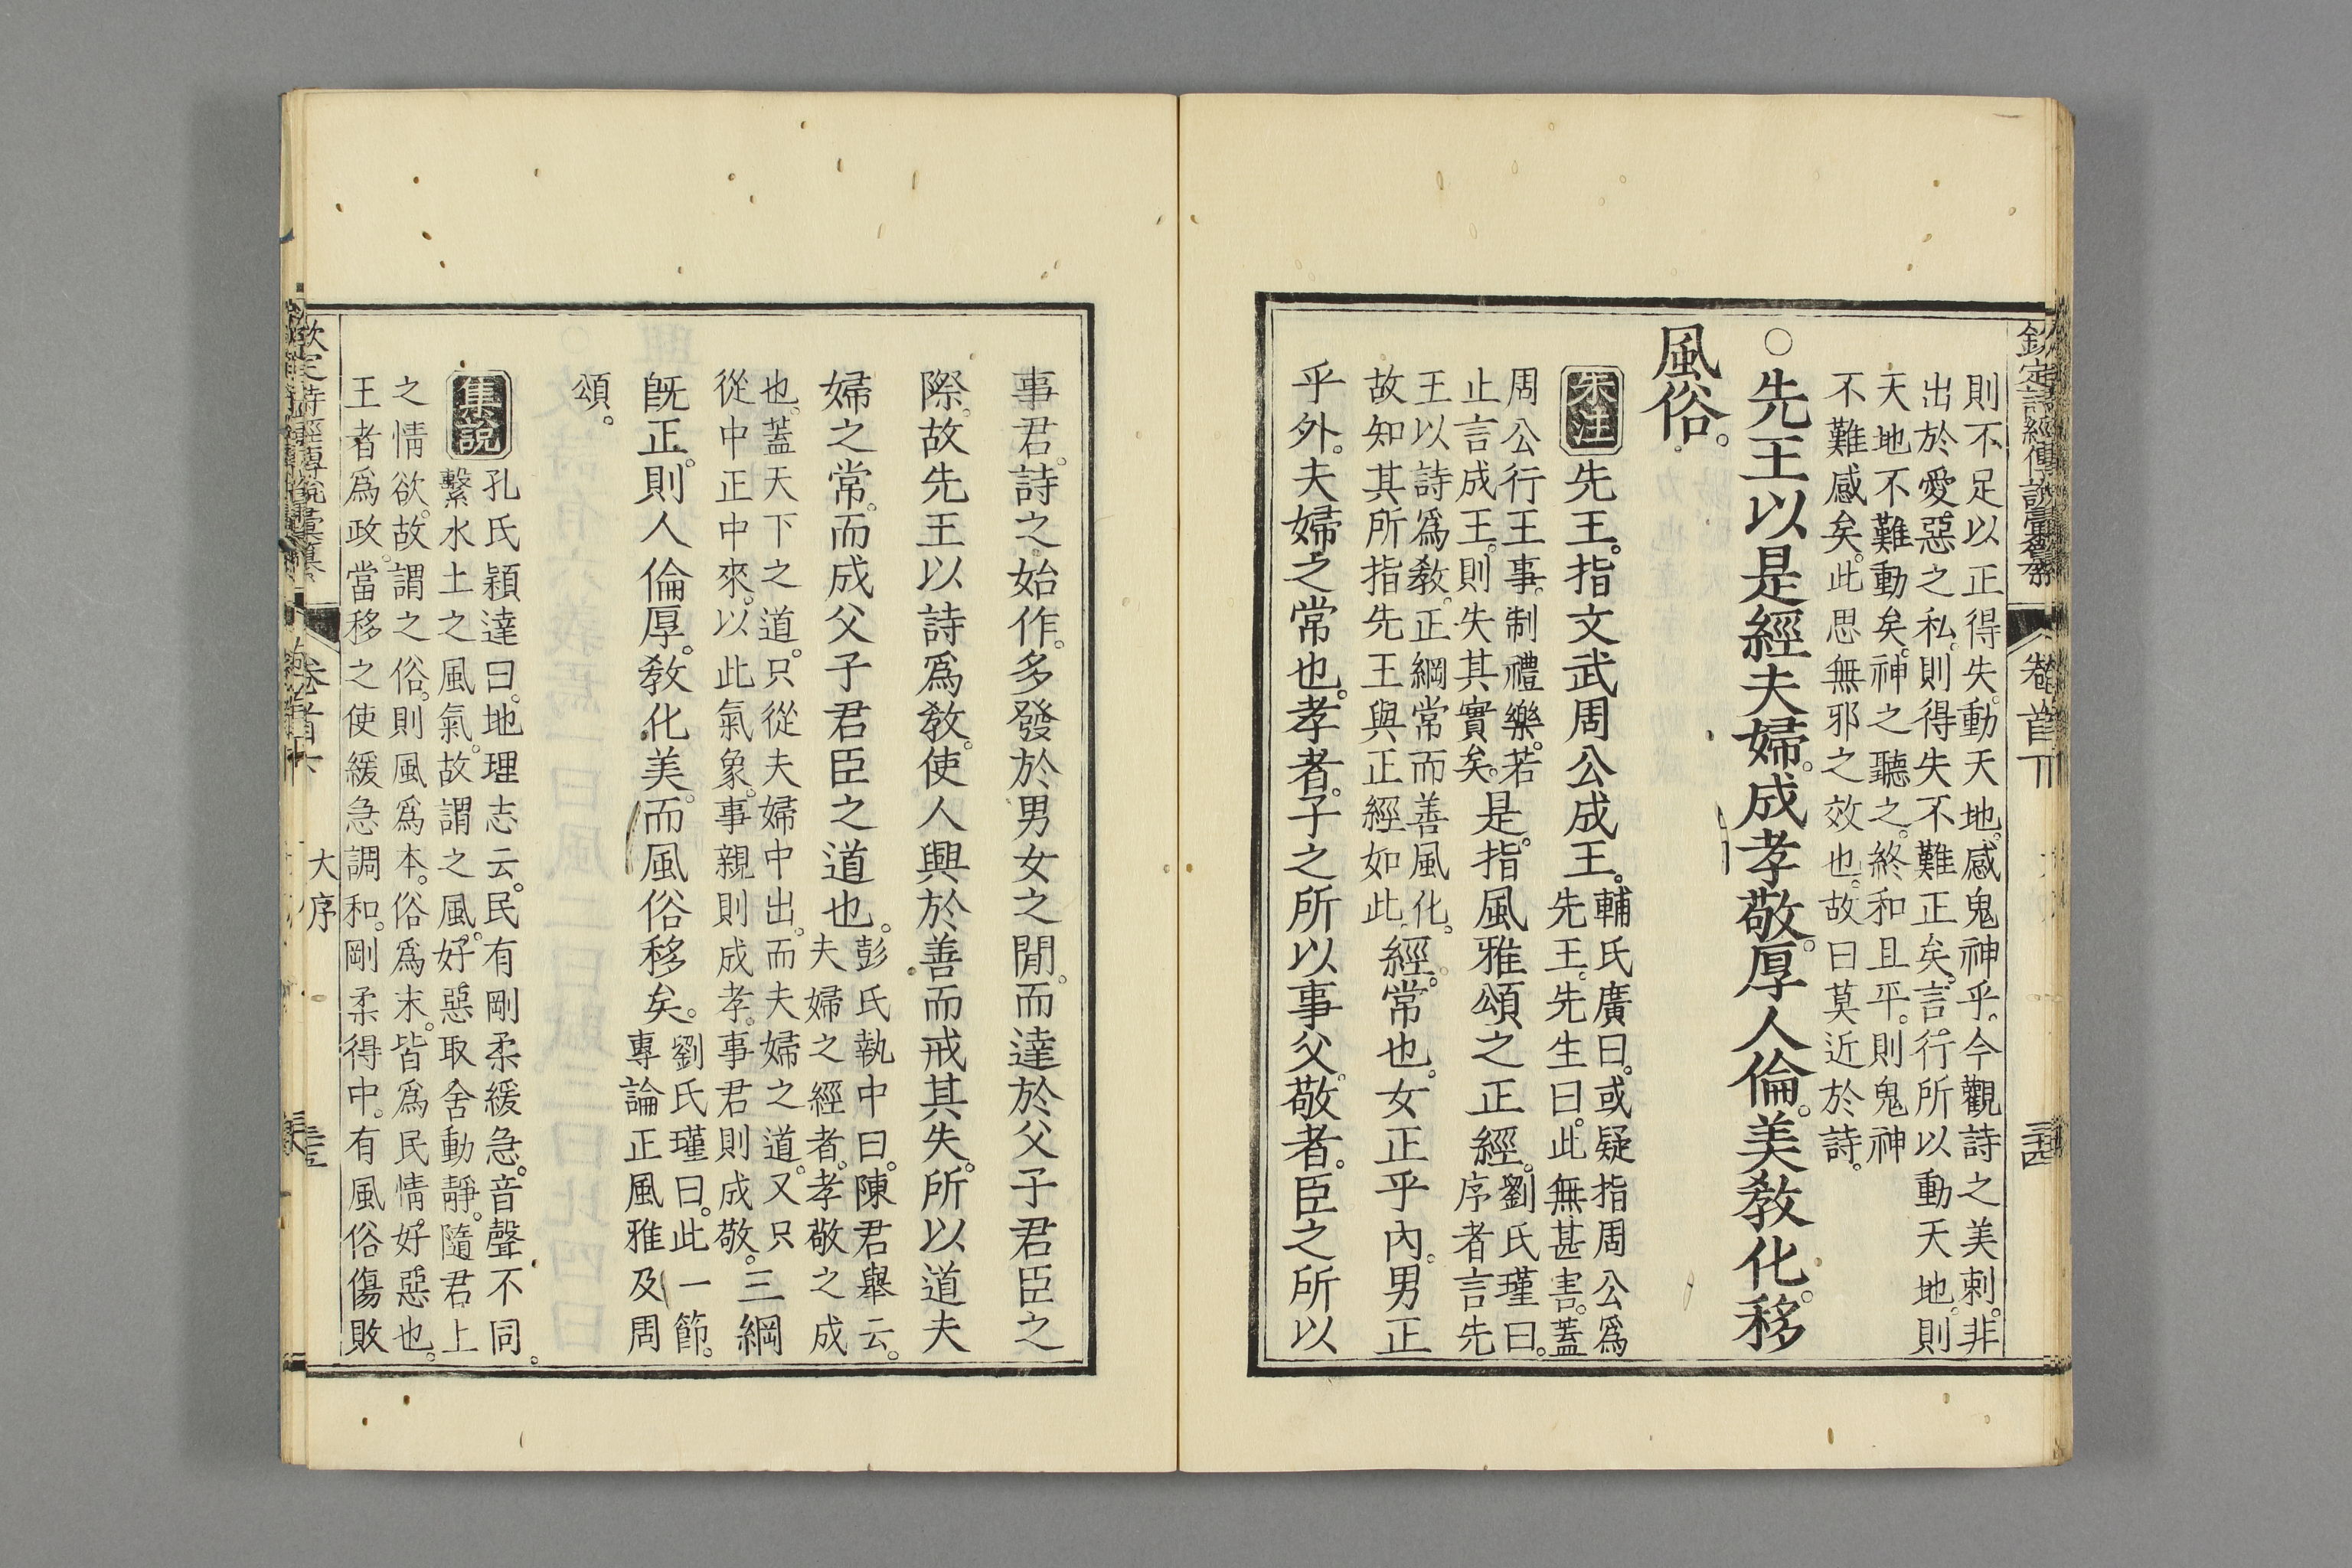 欽定詩經傳說彙纂 卷首下
則不足以正得失。動天地。感鬼神乎。今觀詩之美刺。非
出於愛惡之私。則得失不難正矣。言行所以動天地。則
天地不難動矣。神之聽之。終和且平。則鬼神
不難感矣。此思無邪之效也。故曰莫近於詩。
○先王以是經夫婦。成孝敬。厚人倫。美教化。移
風俗。
朱注
先王。指文武周公成王。
輔氏廣曰。或疑指周公爲
先王。先生曰。此無甚害。蓋
周公行王事。制禮樂。若
止言成王。則失其實矣。
是。指風雅頌之正經。
劉氏瑾曰。
序者言先
王以詩爲敎。正綱常而善風化。
故知其所指先王與正經如此。
經。常也。女正乎內。男正
乎外。夫婦之常也。孝者。子之所以事父。敬者。臣之所以
事君。詩之始作。多發於男女之閒。而達於父子君臣之
際。故先王以詩爲敎。使人興於善而戒其失。所以道夫
婦之常。而成父子君臣之道也。
彭氏執中曰。陳君舉云。
夫婦之經者。孝敬之成
也。蓋天下之道。只從夫婦中出。而夫婦之道。又只
從中正中來。以此氣象。事親則成孝。事君則成敬。
三綱
旣正。則人倫厚。敎化美。而風俗移矣。
劉氏瑾曰。此一節。
專論正風雅及周
頌。
集說
孔氏穎達曰。地理志云。民有剛柔緩急。音聲不同。
繫水土之風氣。故謂之風。好惡取舍動靜。隨君上
之情欲。故謂之俗。則風爲本。俗爲末。皆爲民情好惡也。
王者爲政。當移之使緩急調和。剛柔得中。有風俗傷敗
大序